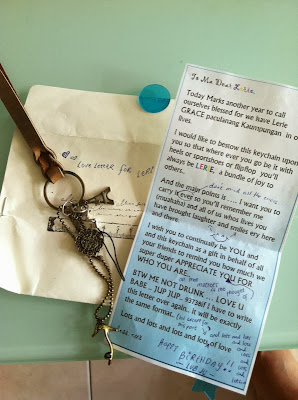 To My Dear Lerie,
Today Marks another year to call
ourselves blessed for we have Lerie
GRACE paculanang Kaumpungan in o
lives.
I would like to bestow this keychain upon
you so that where ever you go be it with
heels or sportshoes or flipflop you'll
always be LERIE, a bundle of joy to
others.
And the major points is .... I want you to
carry it ever so you'll remember me
(muahaha) and all of us whos lives you
have brought laughter and smiles ery here
and there.
I wish you to continually be YOU and
and this keychain as a gift in behalf of all
your friends to remind you how much we
super duper APPRECIATE YOU FOR
WHO YOU ARE.
BTW ME NOT DRUNK ... LOVE U
BABE . JUP JUP.. if I have to write
this letter over again.. it will be exactly
the same format.
Lots and lots and lots and lots of love
HAPPY
BIRTHDAY!!
Love letter for